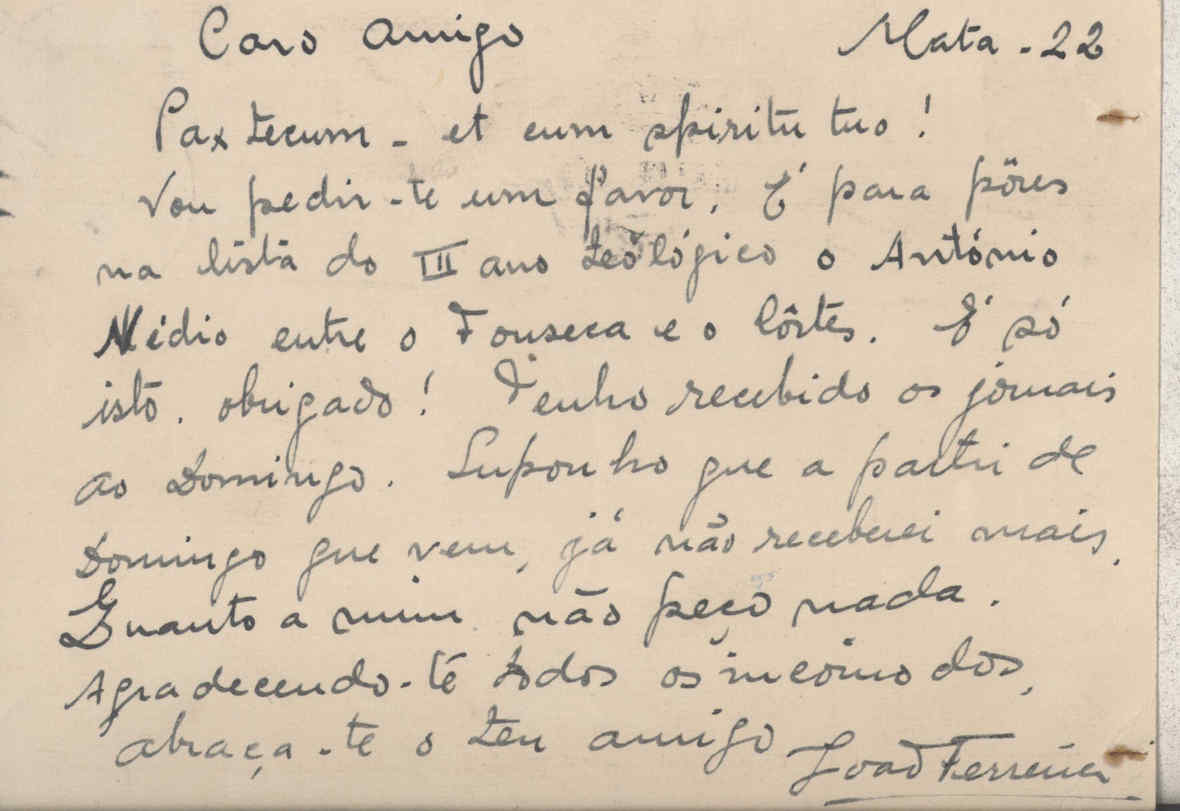 Caro amigo Mata - 22
Pax tecum - et cum spiritu tuo!
Vou pedir-te um favor. É para pôres
na lista do III ano teológico o António
Médio entre o Fonseca e o Côrtes. É só
isto. obrigado! Tenho recebido os jornais
ao Domingo. Suponho que a partir de
Domingo que vem, já não receberei mais.
Quanto a mim não peço nada.
Agradecendo-te todos os incómodos,
abraça-te o teu amigo João Ferreira